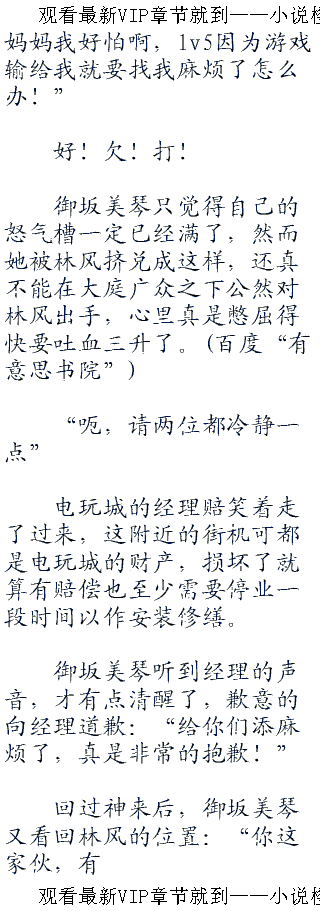 观看最新VIP章节就到——小说楼
妈妈我好怕啊，lv5因为游戏
输给我就要找我麻烦了怎么
办！”
好！欠！打！
御坂美琴只觉得自己的
怒气槽一定已经满了，然而
她被林风挤兑成这样，还真
不能在大庭广众之下公然对
林风出手，心里真是憋屈得
快要吐血三升了。(百度“有
意思书院”)
“呃，请两位都冷静一
点”
电玩城的经理赔笑着走
了过来，这附近的街机可都
是电玩城的财产，损坏了就
算有赔偿也至少需要停业一
段时间以作安装修缮。
御坂美琴听到经理的声
音，才有点清醒了，歉意的
向经理道歉：“给你们添麻
烦了，真是非常的抱歉！”
回过神来后，御坂美琴
又看回林风的位置：“你这
家伙，有
观看最新VIP章节就到——小说楼